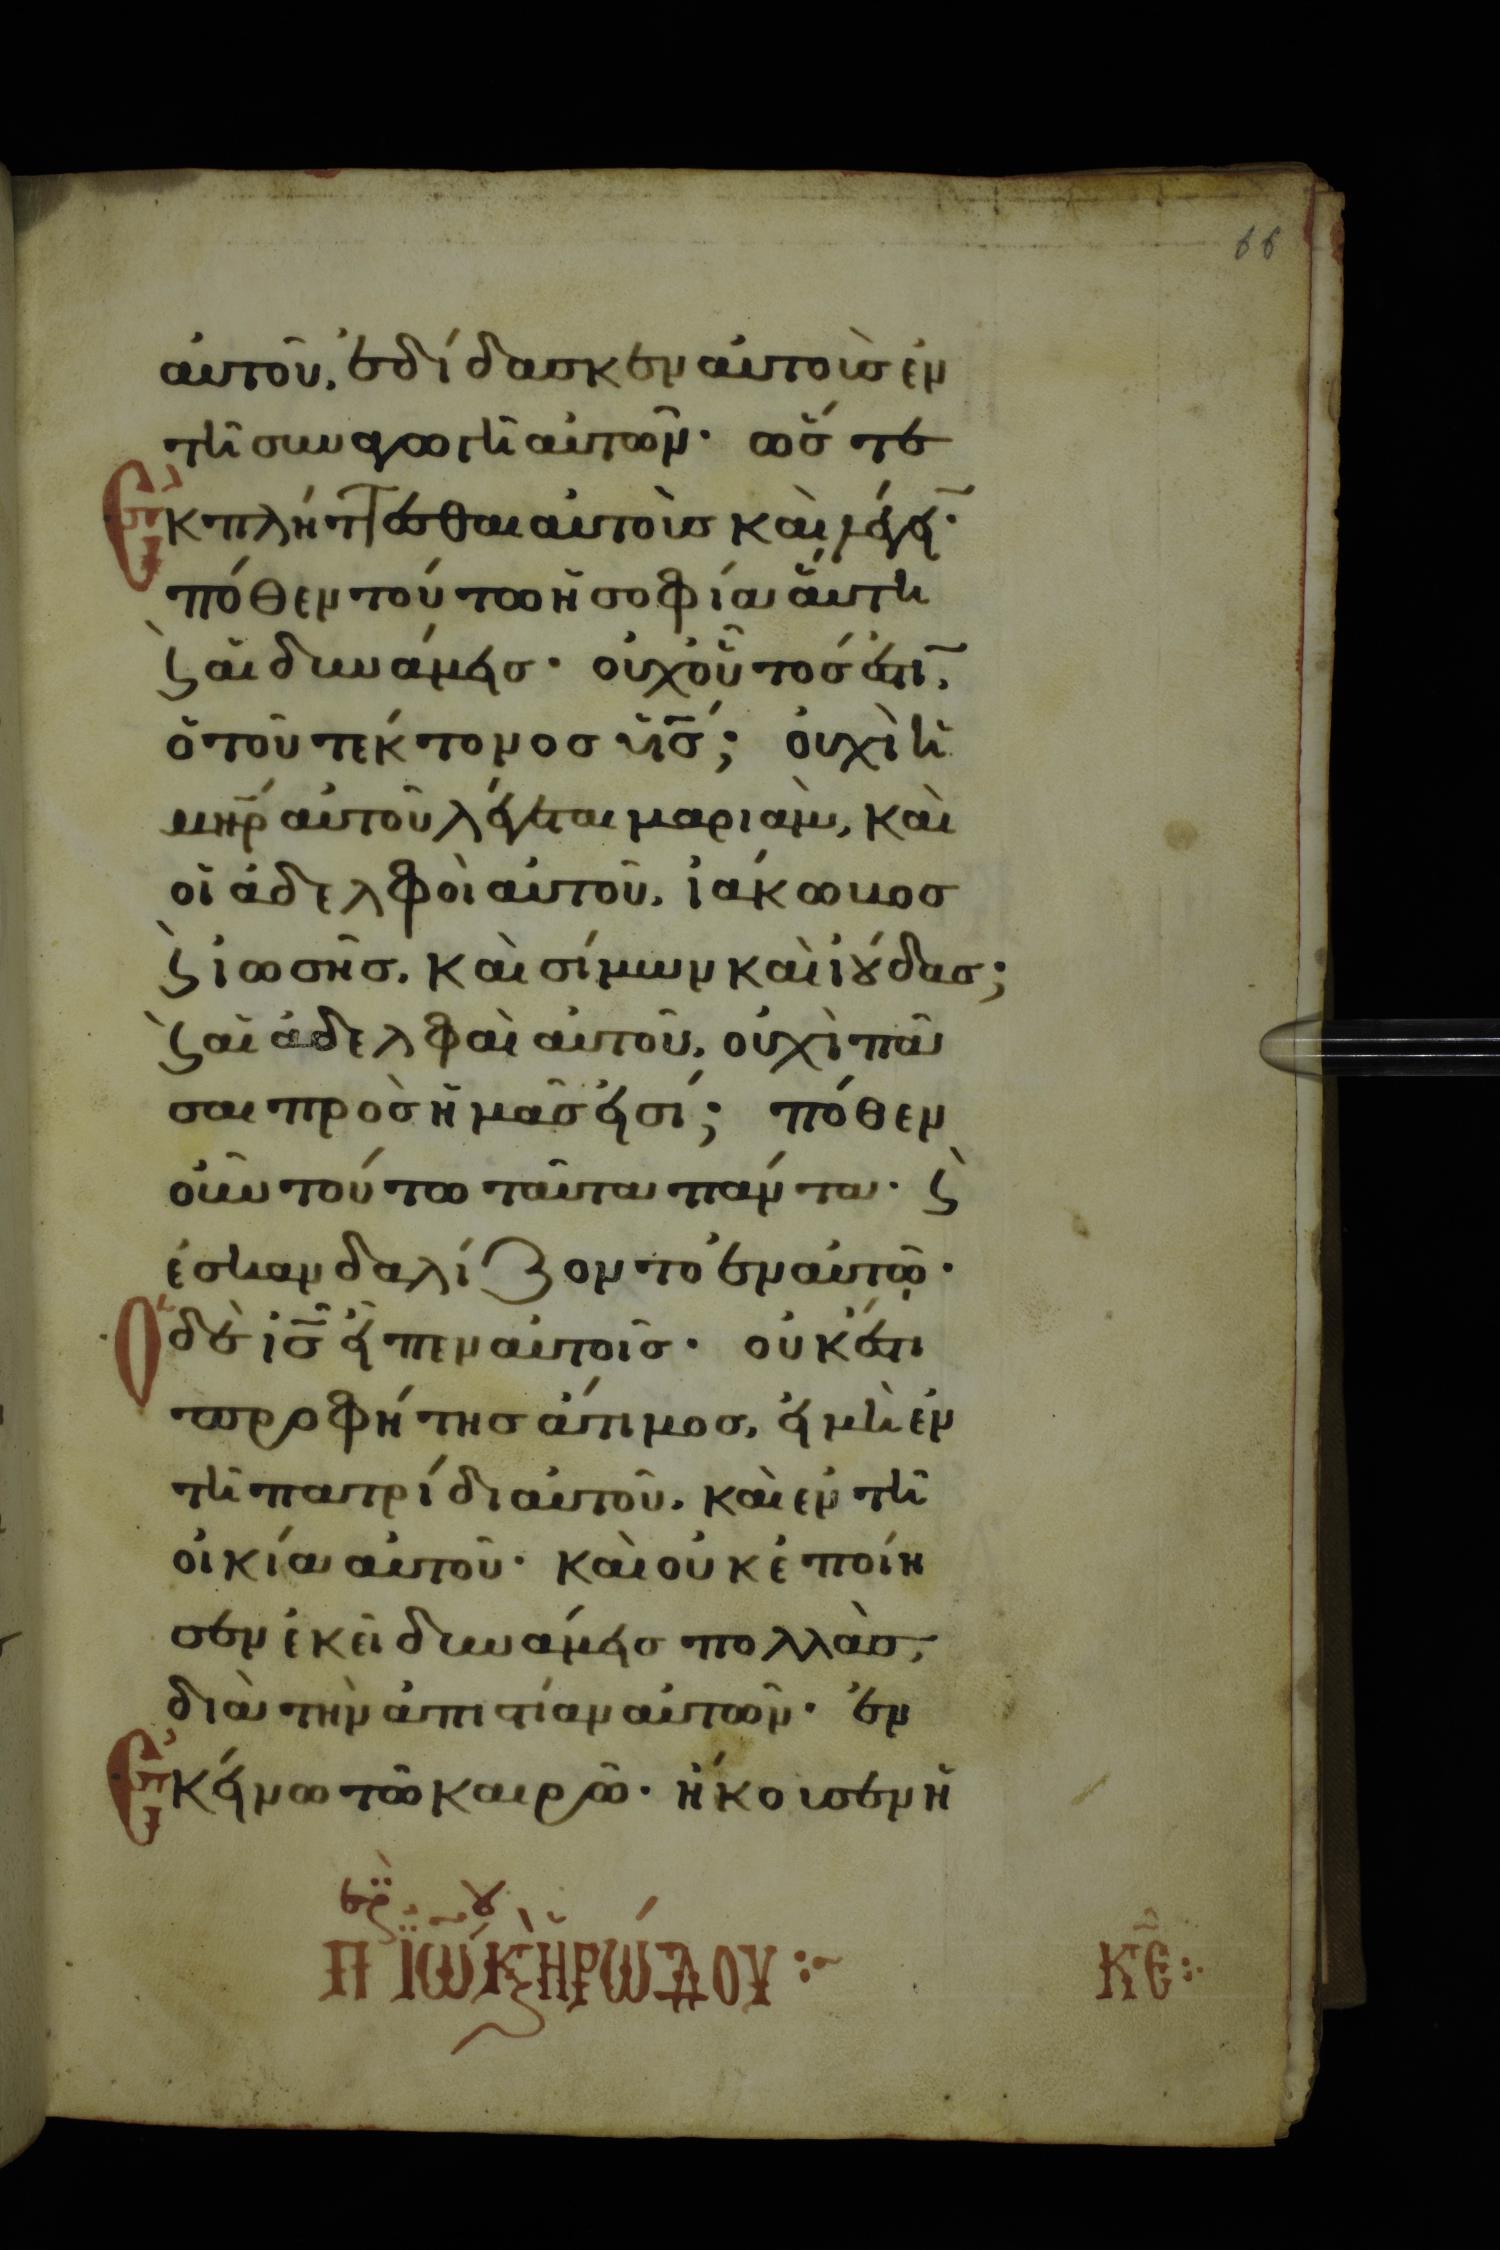 66
αὐτοῦ, ἐδίδασκεν αὐτοὺσ ἐν
τῆ συναγωγῆ αὐτῶν· ὥστε
ἐκπλήττεσθαι αὐτοὺσ καὶ λέγειν·
πόθεν τούτω ἡ σοφία αὕτη
ϗ αἱ δυνάμεισ· οὐχ οὗτοσ ἐστιν,
ὁ τοῦ τέκτονοσ υἱ̅σ̅; οὐχὶ ἡ
μη̅ρ̅ αὐτοῦ λέγεται μαριὰμ, καὶ
οἱ ἀδελφοὶ αὐτοῦ, ἰάκωβοσ
ϗ ἰωσῆσ, καὶ σίμων καὶ ἰούδασ;
ϗ αἱ ἀδελφαὶ αὐτοῦ, οὐχὶ πᾶ
σαι πρὸσ ἡμᾶσ εἰσί; πόθεν
οὖν τούτω ταῦτα πάντα· ϗ
ἐσκανδαλίζοντο ἐν αὐτῶ·
Ὁ δὲ ι̅σ̅ εἶπεν αὐτοῖσ· οὐκ ἔστι
προφήτησ ἄτιμοσ, εἰ μὴ ἐν
τῆ πατρίδι αὐτοῦ, καὶ ἐν τῆ
οἰκία αὐτοῦ· καὶ οὐκ ἐποίη
σεν ἐκεῖ δυνάμεισ πολλὰσ,
διὰ τὴν ἀπιστίαν αὐτῶν· ἐν
Ἐκείνω τῶ καιρῶ· ἤκουσεν ἡ
ΚΕ:·